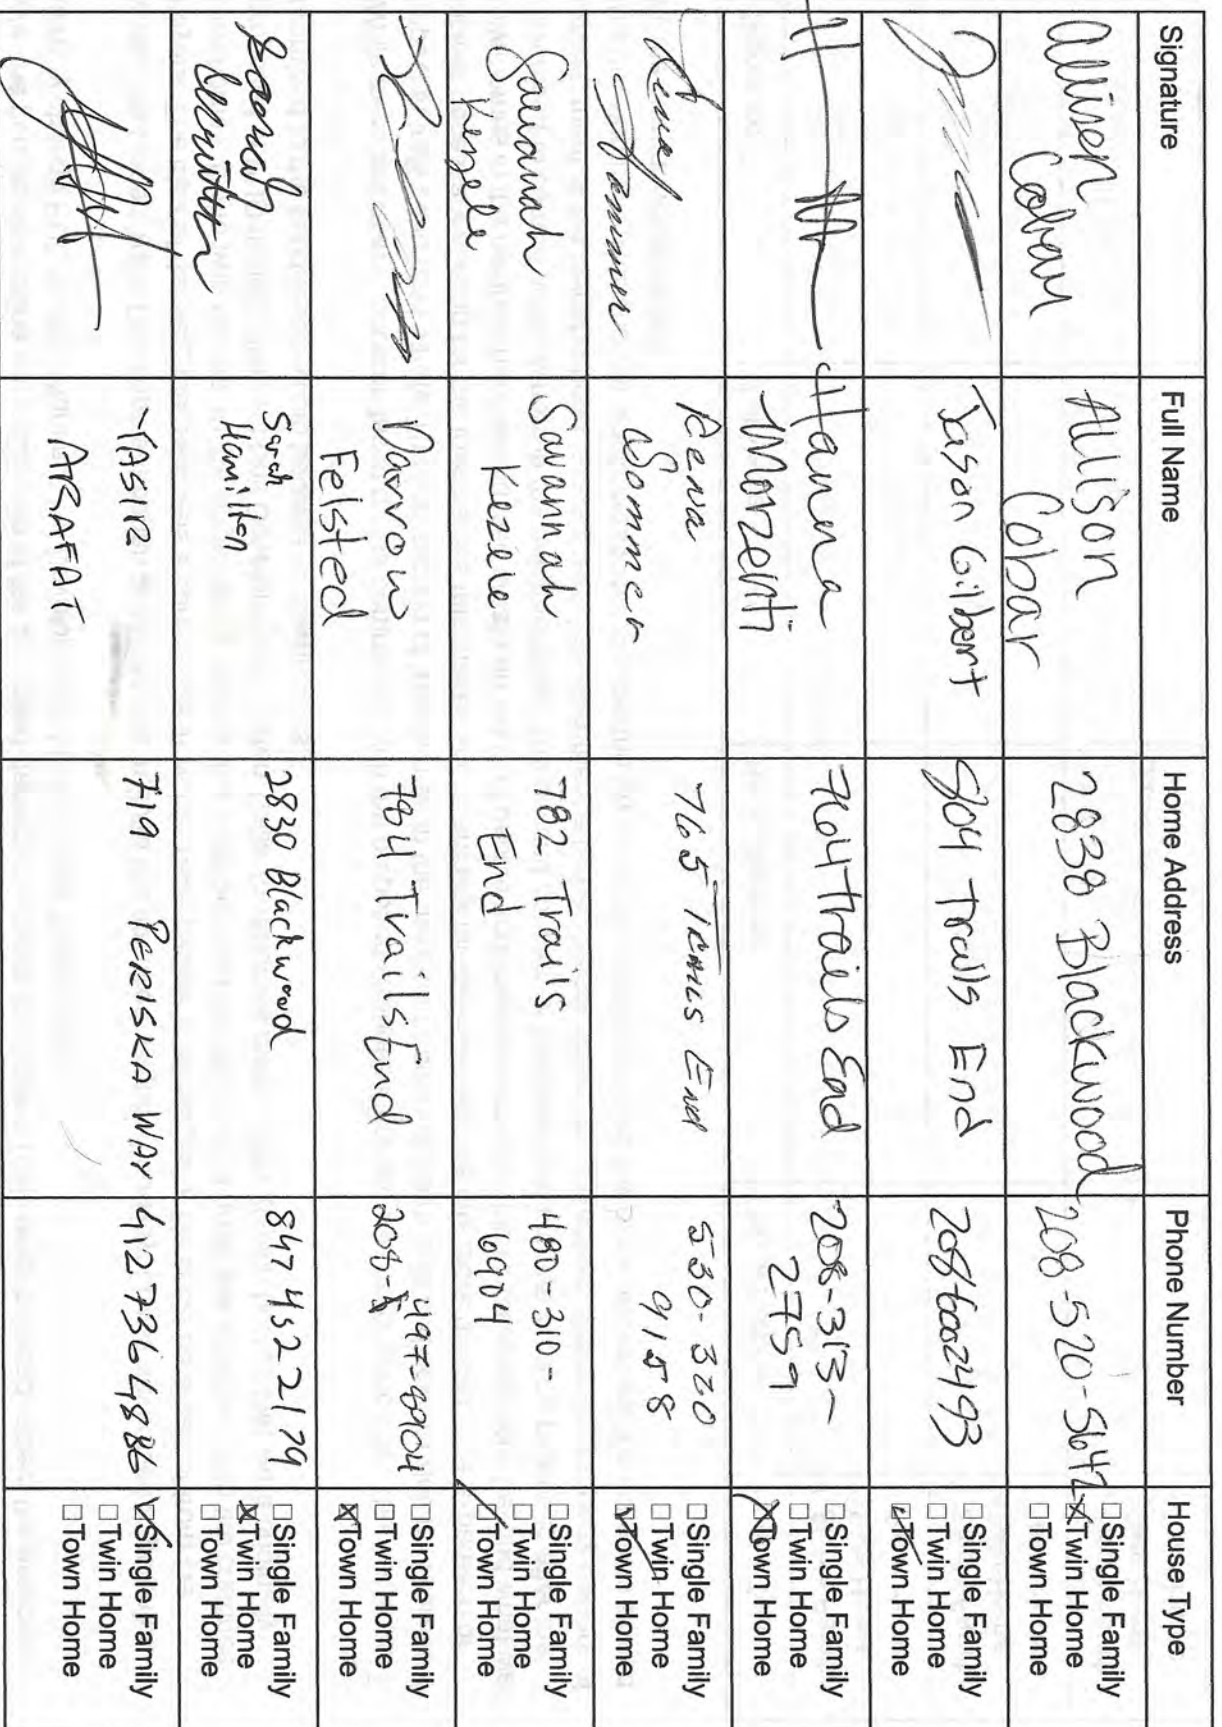 Signature Full Name Home Address Phone Number House Type
Allison Cobar Allison Cobar 2838 Blackwood 208-520-5642 □Single Family
☒Twin Home
□Town Home
Jason Gilbert 804 Trails End 2086002493 □Single Family
□Twin Home
☑Town Home
Hanna Morzenti 764 trails End 208-313-2759 □Single Family
□Twin Home
☒Town Home
Rena Sommer Rena Sommer 765 Trails End 530-320 9158 □Single Family
□Twin Home
☑Town Home
Savanah Kezele Savannah Kezele 782 Trails End 480-310-6904 □Single Family
□Twin Home
☑Town Home
Darrow Felsted 7864 Trails End 208- 497-8904 □Single Family
□Twin Home
☒Town Home
Sarah Hamilton Sarah Hamilton 2830 Blackwood 847 452 2179 □Single Family
☒Twin Home
□Town Home
YASIR ARAFAT 719 PERISKA WAY 412 736 4886 ☑Single Family
□Twin Home
□Town Home